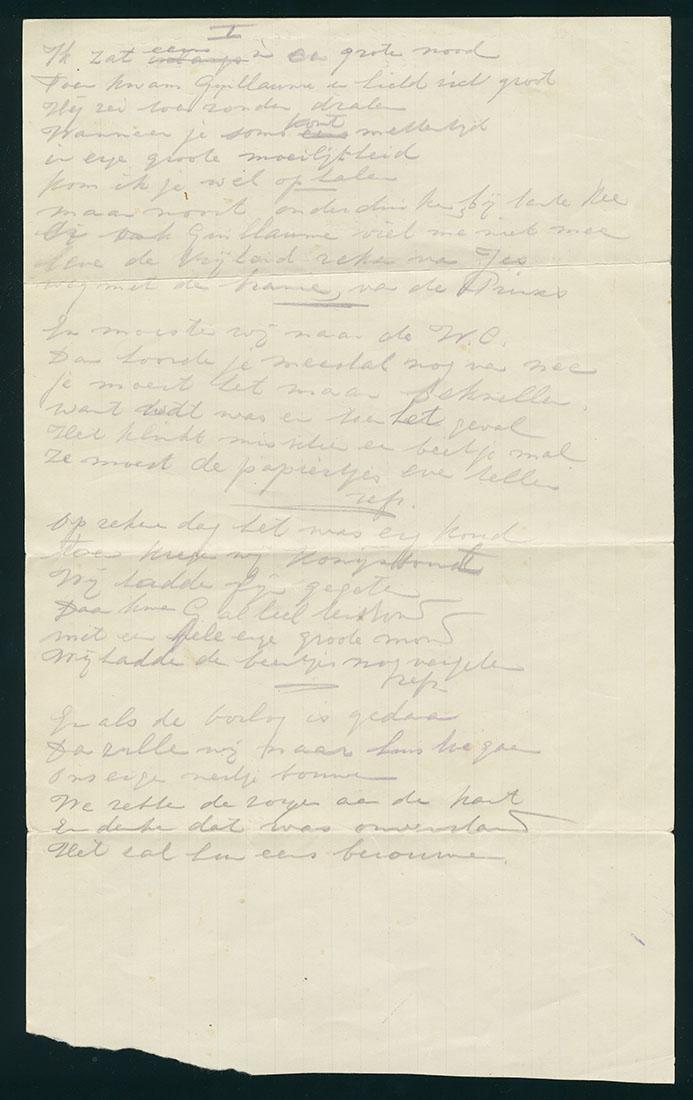 I
Ik zat eens in een grote nood
Toen kwam Guillaume en hield zich groot
Hij zei toen zonder dralen
Wanneer je soms komt mettertijd
in erge groote moeilijkheid
kom ik je wel op halen
maar nooit onderduiken bij tante Kee
Guillaume wiel me niet mee
leve de vrijheid
weg met de van de Prins
En moeste wij naar de W.C.
Dan hoorde je meestal nog van nee
je moest het maar
want dat was er toen het geval
Het klinkt misschien een beetje mal
Ze moest de papiertjes eve telle
ref.
Op zeker dag het was erg koud
Toen krege wij
Wij hadde fijn gegete
Daar kwam G al heel
met een hele erge groote mond
Wij hadde de beertjes nog vergete
refr
En als de oorlog is gedaan
Dan zulle wij naar huis toe gaan
Ons eige nestje bouwe
We zette de zorge aan de kant
En denke dat was onverstand
Het zal hun eens berouwe.